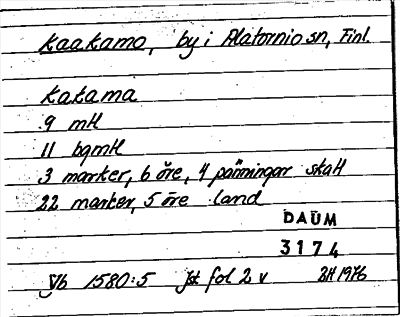 Kaakamo, by i Alatornio sn, Finl.
Kakama
9 mtl
11 bgmtl
3 marker, 6 öre, 4 pänningar skatt
22 marker, 5 öre land
DAUM
3174
Jb 1580:5 Jst fol 2 v BH 1976